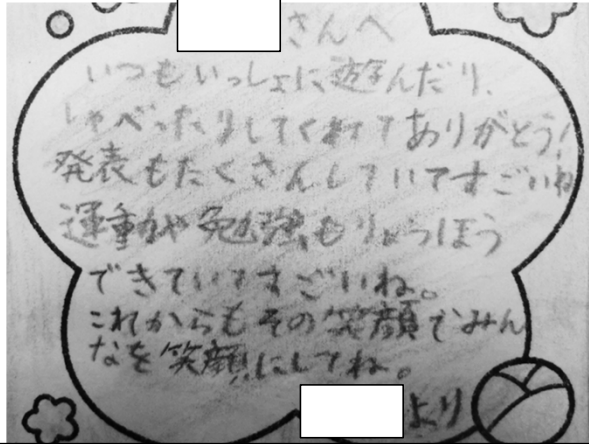 さんへ
いつもいっしょに遊んだり、
しゃべったりしてくれてありがとう!
発表もたくさんしていてすごいね
運動や勉強もりょうほう
できていてすごいね。
これからもその笑顔でみん
なを笑顔にしてね。
より